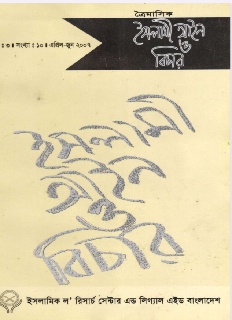 ত্রৈমাসিক
ইসলামী আইন
ও
বিচার
: ৩ ॥ সংখ্যা : ১০ ॥ এপ্রিল-জুন ২০০৭
ইসলামী
আইন
ও
বিচার
ইসলামিক ল' রিসার্চ সেন্টার এন্ড লিগ্যাল এইড বাংলাদেশ